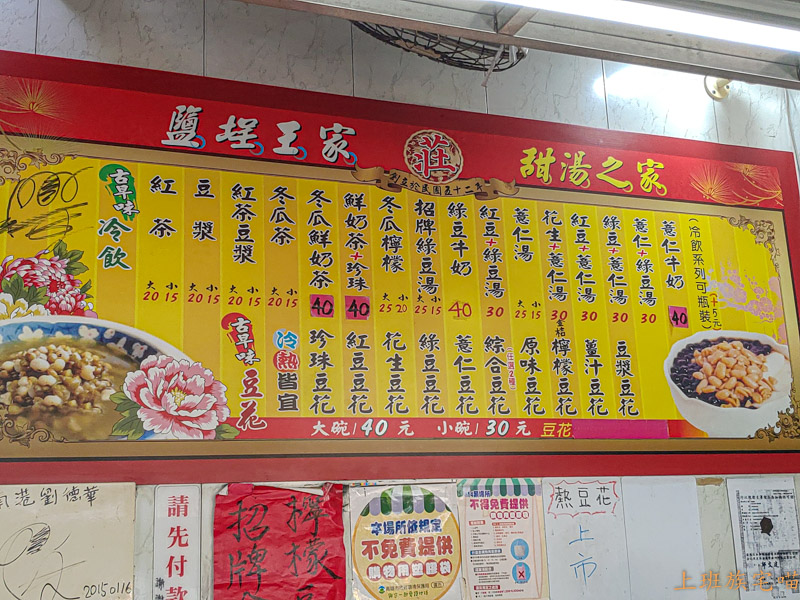 鹽埕王家
莊
創立於民國五十二年
甜湯之家
古早味
冷飲
紅茶
大 小
20 15
豆漿
大 小
20 15
紅茶豆漿
大 小
20 15
冬瓜茶
大 小
20 15
冬瓜鮮奶茶
40
鮮奶茶+珍珠
40
冬瓜檸檬
大 小
25 20
招牌綠豆湯
大 小
25 15
綠豆牛奶
40
紅豆+綠豆湯
30
薏仁湯
大 小
25 15
花生+薏仁湯
30
紅豆+薏仁湯
30
綠豆+薏仁湯
30
薏仁+綠豆湯
30
薏仁牛奶
40
(冷飲系列可瓶裝)
古早味
豆花
冷熱皆宜
珍珠豆花
紅豆豆花
花生豆花
綠豆豆花
薏仁豆花
綜合豆花
(任選2種)
原味豆花
金桔檸檬豆花
薑汁豆花
豆漿豆花
大碗/40元 小碗/30元 豆花
港劉德華
20150116
請先付款
謝謝
招牌
檸檬豆
本場所依規定
不免費提供
購物用塑膠袋
不得免費提供
熱豆花
上市
上班族宅喵